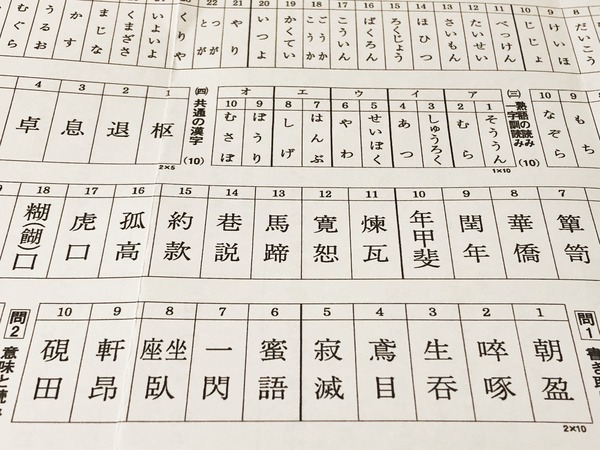 8 だいこう
10 じじょ
11 べっけん
12 たいせい
13 さいもん
14 ほひつ
15 ろくじょう
16 ばくろん
17 こういん
18 ごうか こうか
19 かくてい
20 いつよ
21 やり
22 つが とが
くりや
いよいよ
くまざさ
まじな
かす
うるお
むぐら
9 もち
10 なぞら
(三) 熟語の読み 一字訓読み (10)
ア
1 そううん
2 むら
イ
3 しゅうろく
4 あつ
ウ
5 せいぼく
6 やわ
エ
7 はんぶ
8 しげ
オ
9 ほうり
10 むさぼ
1×10
(四) 共通の漢字 (10)
1 枢
2 退
3 息
4 卓
2×5
7 簞笥
8 華僑
9 閏年
10 年甲斐
11 煉瓦
12 寛恕
13 馬蹄
14 巷説
15 約款
16 孤高
17 虎口
18 糊(餬)口
問1
1 朝盈
2 啐啄
3 生呑
4 鳶目
5 寂滅
6 蜜語
7 一閃
8 坐臥 座
9 軒昂
10 硯田
2×10
問2 意味と読み